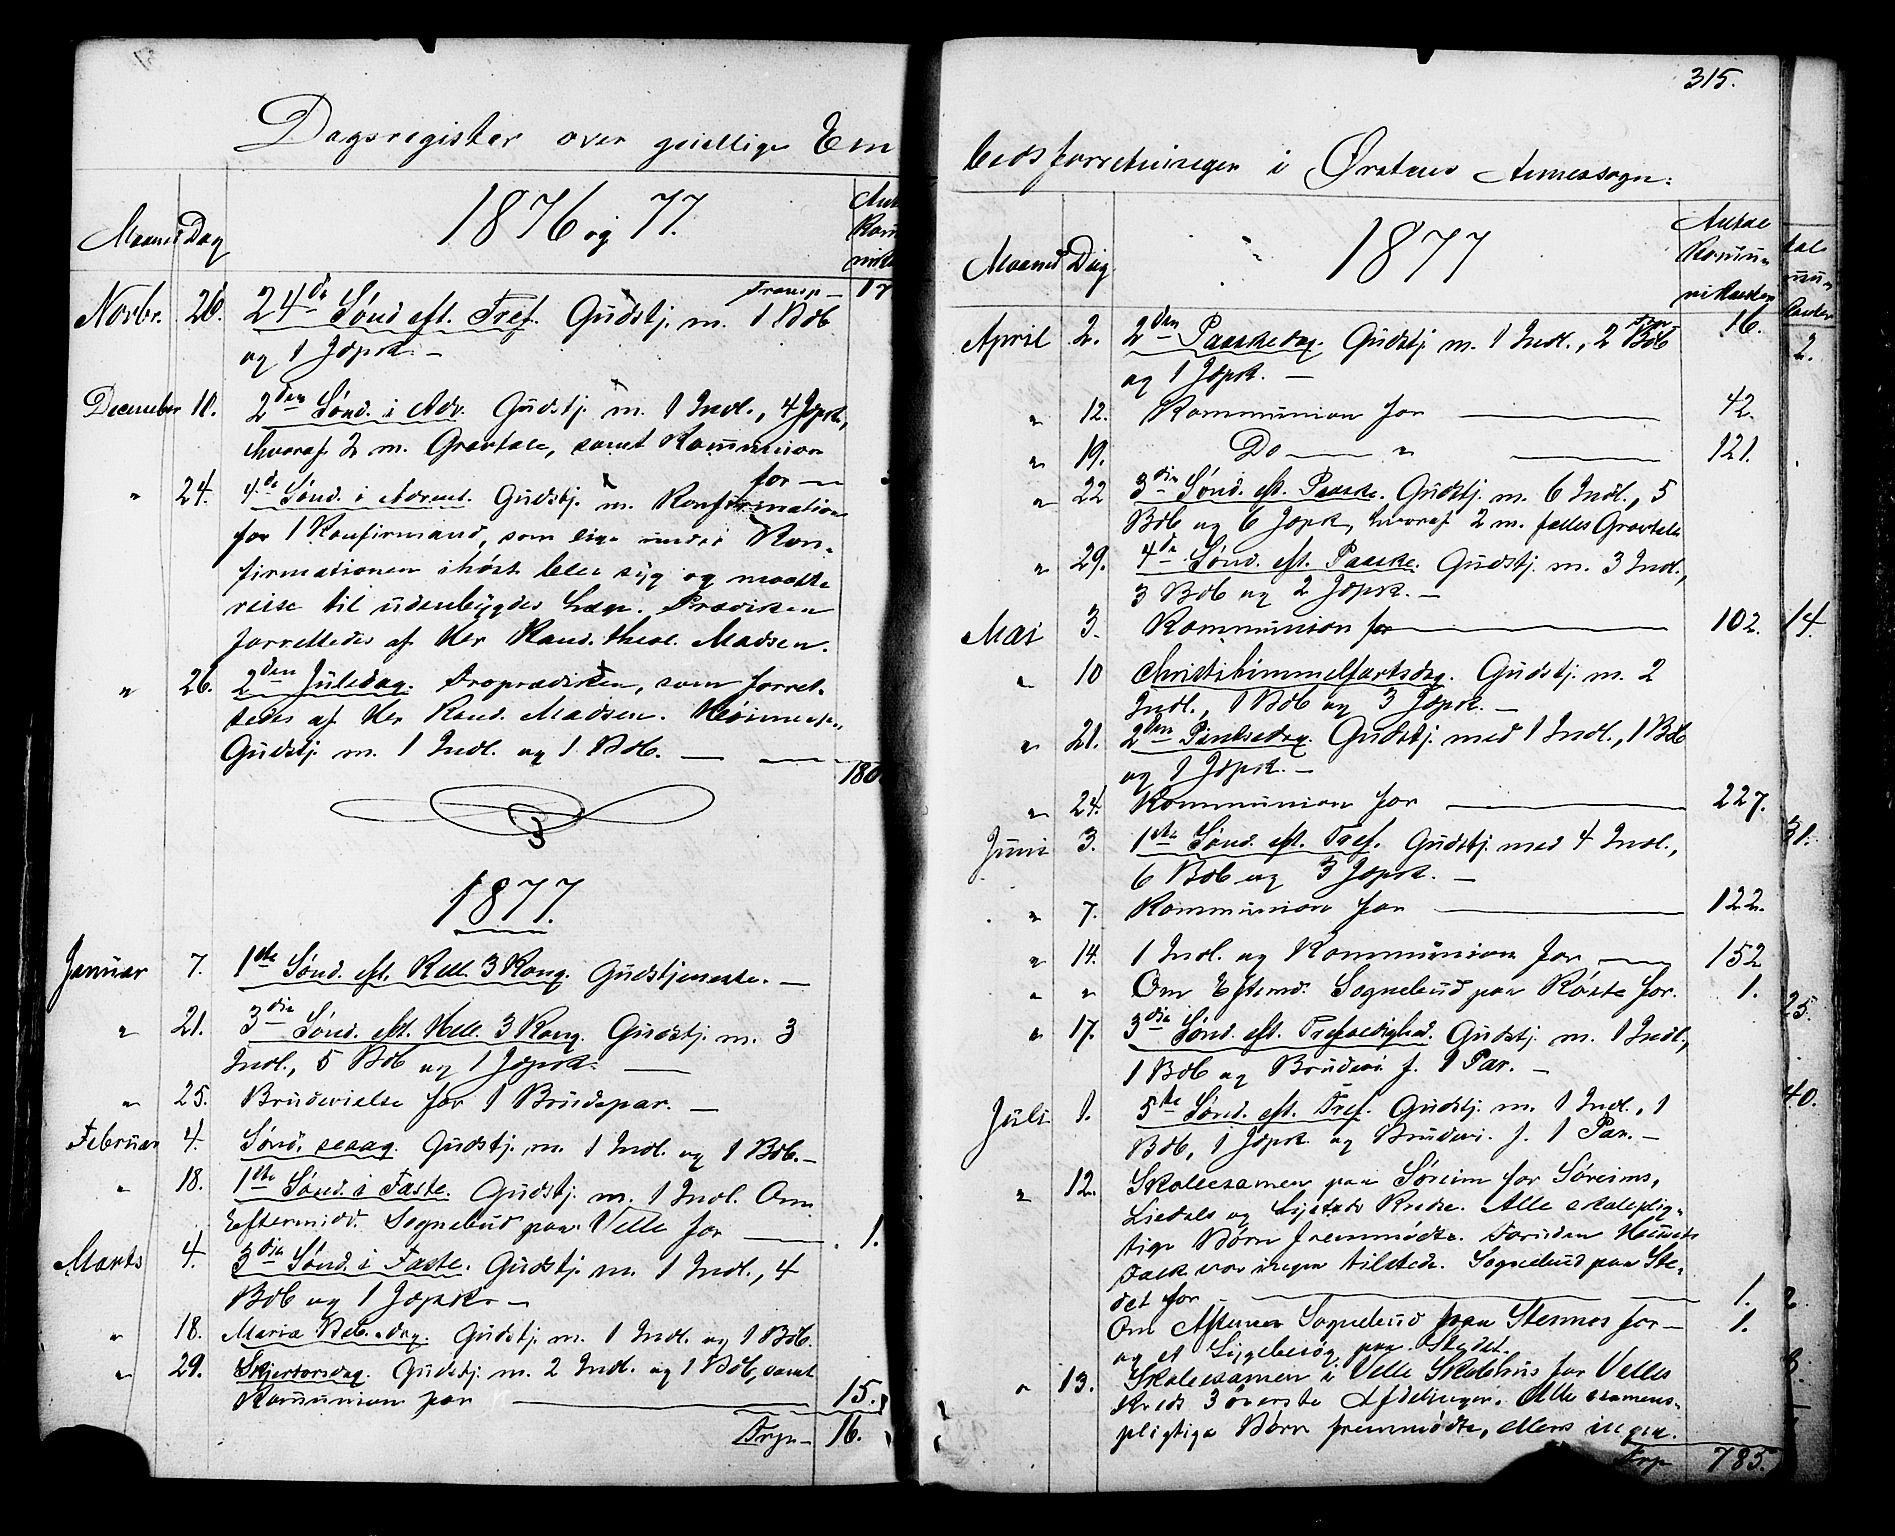 315.
Dagsregister over geistlige Em
1876 og 77.
Maaned Dag
Transp –
Novbr. 26. 24de Sönd. eft. Tref. Gudstj. m. 1 Bdb
og 1 Jdpsk. –
December 10. 2den Sönd. i Adv. Gudstj. m. 1 Indl., 4 Jdpsk.,
hvoraf 2 m. Gravtale, samt Kommunion
for –
" 24. 4de Sönd. i Advent. Gudstj. m. Konfirmation
for 1 Konfirmand, som lige under Kon-
firmationen ihöst blev syg og maatte
reise til udenbygdes Læge. Prædiken
forrettedes af Hr Kand. theol. Madsen.
" 26. 2den Juledag. Froprædiken, som forret-
tedes af Hr Kand. Madsen. Höimesse-
Gudstj. m. 1 Indl. og 1 Bdb. – 180
1877.
Januar 7. 1ste Sönd. eft. Hell. 3 Kong. Gudstjeneste. –
" 21. 3die Sönd. eft. Hell. 3 Kong. Gudstj. m. 3
Indl., 5 Bdb og 1 Jdpsk. –
" 25. Brudevielse for 1 Brudepar. –
Februar 4. Sönd. sexag. Gudstj. m. 1 Indl. og 1 Bdb. –
" 18. 1ste Sönd. i Faste. Gudstj. m. 1 Indl. Om
Eftermidd. Sognebud paa Velle for – 1.
Marts 4. 3die Sönd. i Faste. Gudstj. m. 1 Indl., 4
Bdb og 1 Jdpsk. –
" 18. Mariæ Beb.-dag. Gudstj. m. 1 Indl. og 1 Bdb.
" 29. Skjertorsdag. Gudstj. m. 2 Indl. og 1 Bdb, samt
Kommunion for – 15.
Trp – 16.
bedsforretninger i Örstens Annexsogn:
1877
Maaned Dag
Antal
Kommu-
nikanter
Trp
April 2. 2den Paaskedag. Gudstj. m. 1 Indl., 2 Bdb 16.
og 1 Jdpsk. –
" 12. Kommunion for – 42.
" 19. Do – " – 121.
" 22 3die Sönd. eft. Paaske. Gudstj. m. 6 Indl., 5
Bdb og 6 Jdpsk, hvoraf 2 m. fælles Gravtale
" 29. 4de Sönd. eft. Paaske. Gudstj. m. 3 Indl.,
3 Bdb og 2 Jdpsk. –
Mai 3. Kommunion for – 102.
" 10 Christihimmelfartsdag. Gudstj. m. 2
Indl., 1 Bdb og 3 Jdpsk. –
" 21. 2den Pintsedag. Gudstj. med 1 Indl., 1 Bdb
og 1 Jdpsk. –
" 24. Kommunion for – 227.
Juni 3. 1ste Sönd. eft. Tref. Gudstj. med 4 Indl.,
6 Bdb og 3 Jdpsk. –
" 7. Kommunion for – 122.
" 14. 1 Indl. og Kommunion for – 152
" " Om Eftmd. Sognebud paa Röste for. 1.
" 17. 3die Sönd. eft. Trefoldighed. Gudstj. m. 1 Indl.,
1 Bdb og Brudevi. f. 1 Par. –
Juli 1. 5te Sönd. eft. Tref. Gudstj. m. 1 Indl., 1
Bdb, 1 Jdpsk. og Brudevi. f. 1 Par. –
" 12. Skoleexamen paa Söreim for Söreims,
Liedals og Kredse. Alle skoleplig-
tige Börn fremmödte. Foruden
var ingen tilstede. Sognebud paa Ste-
det for – 1.
Om Aftenen Sognebud paa for – 1.
og et Sygebesög paa Stedet.
" 13. Skoleexamen i Velle Skolehus for Velle
Kreds 3 överste Afdelinger. Alle examens-
pligtige Börn fremmödte, ellers ingen.
Trp 785.